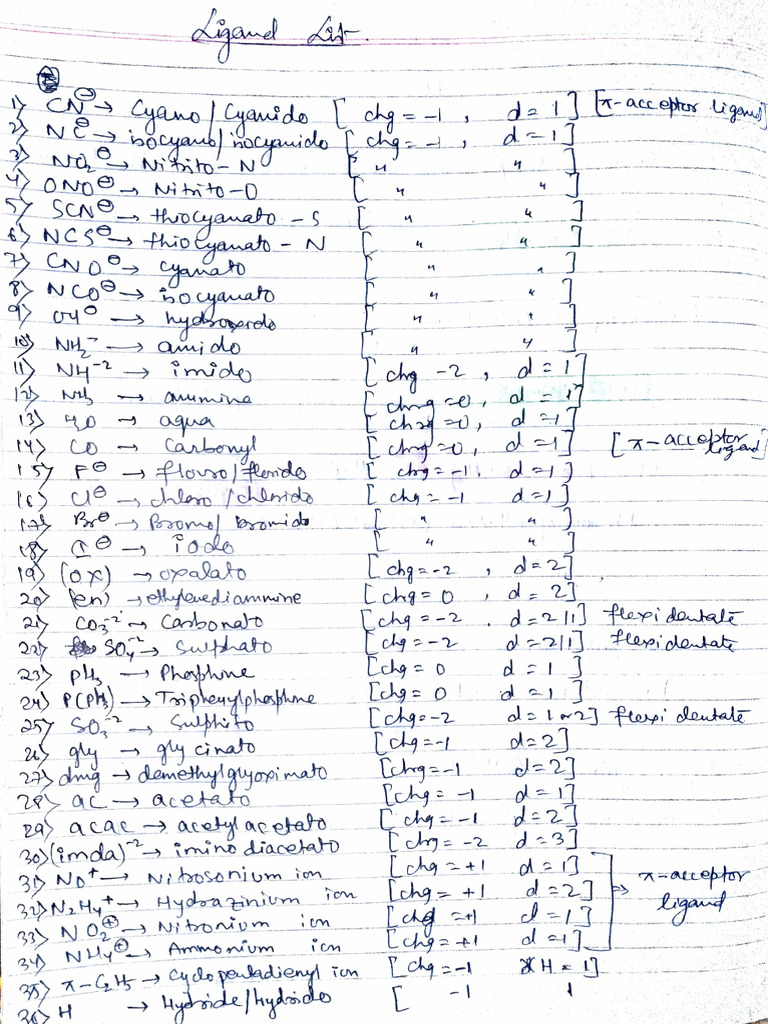 Ligand List.
1) CN⊖ → Cyano/Cyanido [chg = -1, d = 1] [π-acceptor ligand]
2) NC⊖ → isocyano/isocyanido [chg = -1, d = 1]
3) NO2⊖ → Nitrito-N [ " " ]
4) ONO⊖ → Nitrito-O [ " " ]
5) SCN⊖ → thiocyanato-S [ " " ]
6) NCS⊖ → thiocyanato-N [ " " ]
7) CNO⊖ → cyanato [ " " ]
8) NCO⊖ → isocyanato [ " " ]
9) OH⊖ → hydroxido [ " " ]
10) NH2- → amido [ " " ]
11) NH-2 → imido [chg -2, d = 1]
12) NH3 → ammine [chrg = 0, d = 1]
13) H2O → aqua [chrg = 0, d = 1]
14) CO → Carbonyl [chrg = 0, d = 1] [π-acceptor ligand]
15) F⊖ → flouro/florido [chg = -1, d = 1]
16) Cl⊖ → chloro/chlorido [chg = -1 d = 1]
17) Br⊖ → Bromo/bromido [ " " ]
18) I⊖ → iodo [ " " ]
19) (ox) → oxalato [chg = -2, d = 2]
20) (en) → ethylenediammine [chg = 0, d = 2]
21) CO3-2 → Carbonato [chg = -2, d = 2/1] flexidentate
22) SO4-2 → Sulphato [chg = -2 d = 2/1] flexidentate
23) PH3 → Phosphine [chg = 0 d = 1]
24) P(PH3) → Triphenylphosphine [chg = 0 d = 1]
25) SO3-2 → Sulphito [chg = -2 d = 1 or 2] flexi dentate
26) gly → glycinato [chg = -1 d = 2]
27) dmg → demethylglyoximato [chrg = -1 d = 2]
28) ac → acetato [chg = -1 d = 1]
29) acac → acetylacetato [chg = -1 d = 2]
30) (imda)-2 → imino diacetato [chrg = -2 d = 3]
31) NO+ → Nitrosonium ion [chg = +1 d = 1]
32) N2H4+ → Hydrazinium ion [chg = +1 d = 2] ⇒ π-acceptor ligand
33) NO2⊕ → Nitronium ion [chg = +1 d = 1]
34) NH4⊕ → Ammonium ion [chg = +1 d = 1]
35) π-C2H5 → Cyclopentadienyl ion [chg = -1 H = 1]
36) H → Hydride/Hydrido [ -1 1